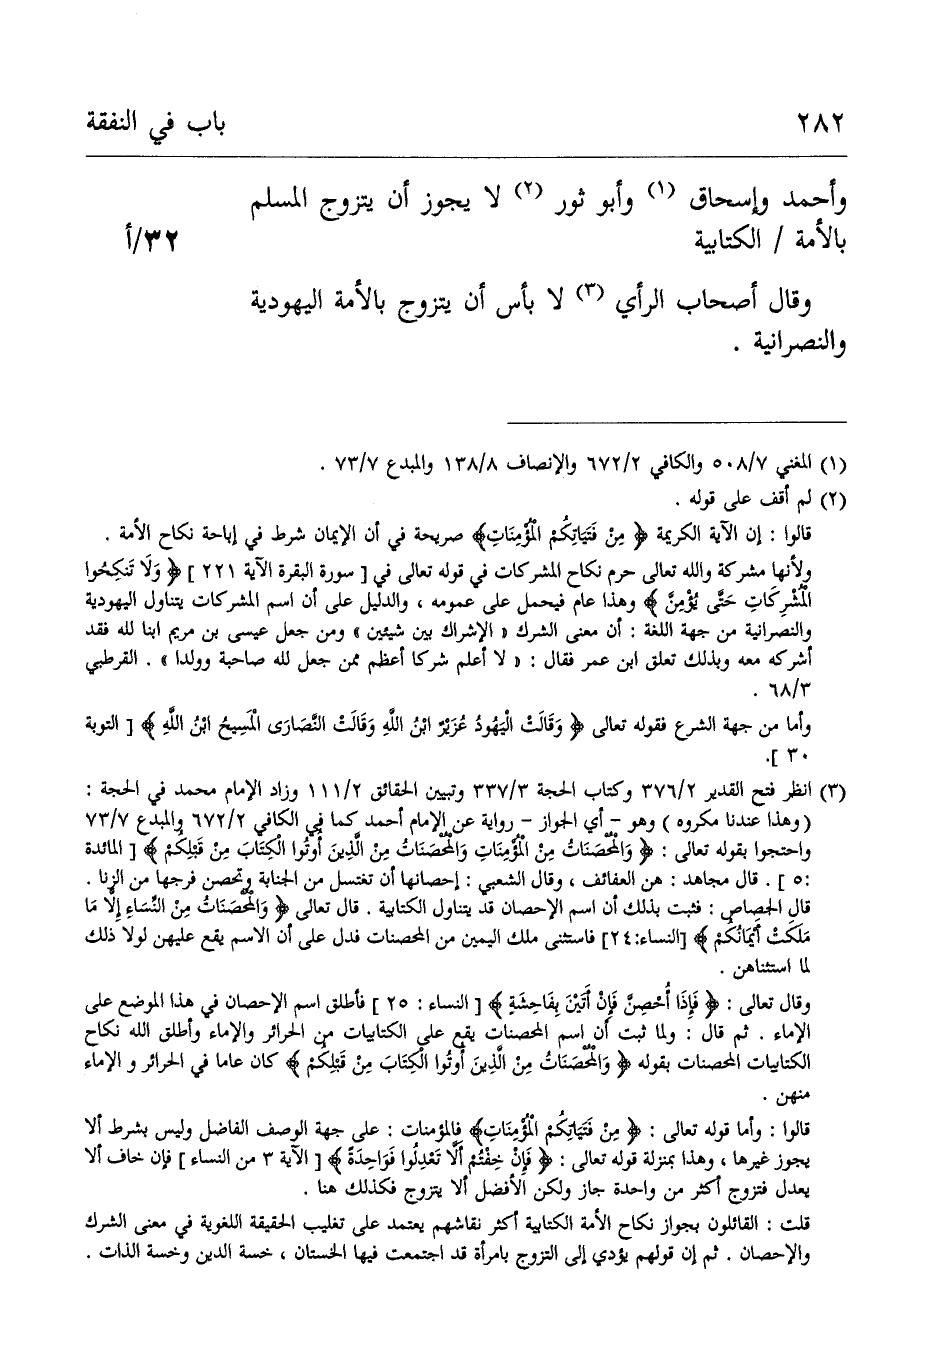 ٢٨٢ باب في النفقة
وأحمد وإسحاق (١) وأبو ثور (٢) لا يجوز أن يتزوج المسلم
بالأمة / الكتابية ٣٢/أ
وقال أصحاب الرأي (٣) لا بأس أن يتزوج بالأمة اليهودية
والنصرانية .
(١) المغني ٥٠٨/٧ والكافي ٦٧٢/٢ والإنصاف ١٣٨/٨ والمبدع ٧٣/٧ .
(٢) لم أقف على قوله .
قالوا : إن الآية الكريمة ﴿ مِنْ فَتَيَاتِكُمْ الْمُؤْمِنَاتِ﴾ صريحة في أن الإيمان شرط في إباحة نكاح الأمة .
ولأنها مشركة والله تعالى حرم نكاح المشركات في قوله تعالى في [ سورة البقرة الآية ٢٢١ ] ﴿ وَلَا تَنكِحُوا
الْمُشْرِكَاتِ حَتَّى يُؤْمِنَّ ﴾ وهذا عام فيحمل على عمومه ، والدليل على أن اسم المشركات يتناول اليهودية
والنصرانية من جهة اللغة : أن معنى الشرك « الإشراك بين شيئين » ومن جعل عيسى بن مريم ابنا لله فقد
أشركه معه وبذلك تعلق ابن عمر فقال : « لا أعلم شركا أعظم ممن جعل لله صاحبة وولدا » . القرطبي
٦٨/٣ .
وأما من جهة الشرع فقوله تعالى ﴿ وَقَالَتْ الْيَهُودُ عُزَيْرٌ ابْنُ اللَّهِ وَقَالَتْ النَّصَارَى الْمَسِيحُ ابْنُ اللَّهِ ﴾ [ التوبة
٣٠ ].
(٣) انظر فتح القدير ٣٧٦/٢ وكتاب الحجة ٣٣٧/٣ وتبيين الحقائق ١١١/٢ وزاد الإمام محمد في الحجة :
(وهذا عندنا مكروه ) وهو – أي الجواز – رواية عن الإمام أحمد كما في الكافي ٦٧٢/٢ والمبدع ٧٣/٧
واحتجوا بقوله تعالى : ﴿ وَالْمُحْصَنَاتُ مِنْ الْمُؤْمِنَاتِ وَالْمُحْصَنَاتُ مِنْ الَّذِينَ أُوتُوا الْكِتَابَ مِنْ قَبْلِكُمْ ﴾ [ المائدة
:٥ ] . قال مجاهد : هن العفائف ، وقال الشعبي : إحصانها أن تغتسل من الجنابة وتحصن فرجها من الزنا .
قال الجصاص : فثبت بذلك أن اسم الإحصان قد يتناول الكتابية . قال تعالى ﴿ وَالْمُحْصَنَاتُ مِنْ النِّسَاءِ إِلَّا مَا
مَلَكَتْ أَيْمَانُكُمْ ﴾ [النساء:٢٤] فاستثنى ملك اليمين من المحصنات فدل على أن الاسم يقع عليهن لولا ذلك
لما استثناهن .
وقال تعالى : ﴿ فَإِذَا أُحْصِنَّ فَإِنْ أَتَيْنَ بِفَاحِشَةٍ ﴾ [ النساء : ٢٥ ] فأطلق اسم الإحصان في هذا الموضع على
الإماء . ثم قال : ولما ثبت أن اسم المحصنات يقع على الكتابيات من الحرائر والإماء وأطلق الله نكاح
الكتابيات المحصنات بقوله ﴿ وَالْمُحْصَنَاتُ مِنْ الَّذِينَ أُوتُوا الْكِتَابَ مِنْ قَبْلِكُمْ ﴾ كان عاما في الحرائر و الإماء
منهن .
قالوا : وأما قوله تعالى : ﴿ مِنْ فَتَيَاتِكُمْ الْمُؤْمِنَاتِ﴾ فالمؤمنات : على جهة الوصف الفاضل وليس بشرط ألا
يجوز غيرها ، وهذا بمنزلة قوله تعالى : ﴿ فَإِنْ خِفْتُمْ أَلَّا تَعْدِلُوا فَوَاحِدَةً ﴾ [ الآية ٣ من النساء ] فإن خاف ألا
يعدل فتزوج أكثر من واحدة جاز ولكن الأفضل ألا يتزوج فكذلك هنا .
قلت : القائلون بجواز نكاح الأمة الكتابية أكثر نقاشهم يعتمد على تغليب الحقيقة اللغوية في معنى الشرك
والإحصان . ثم إن قولهم يؤدي إلى التزوج بامرأة قد اجتمعت فيها الخستان ، خسة الدين وخسة الذات .